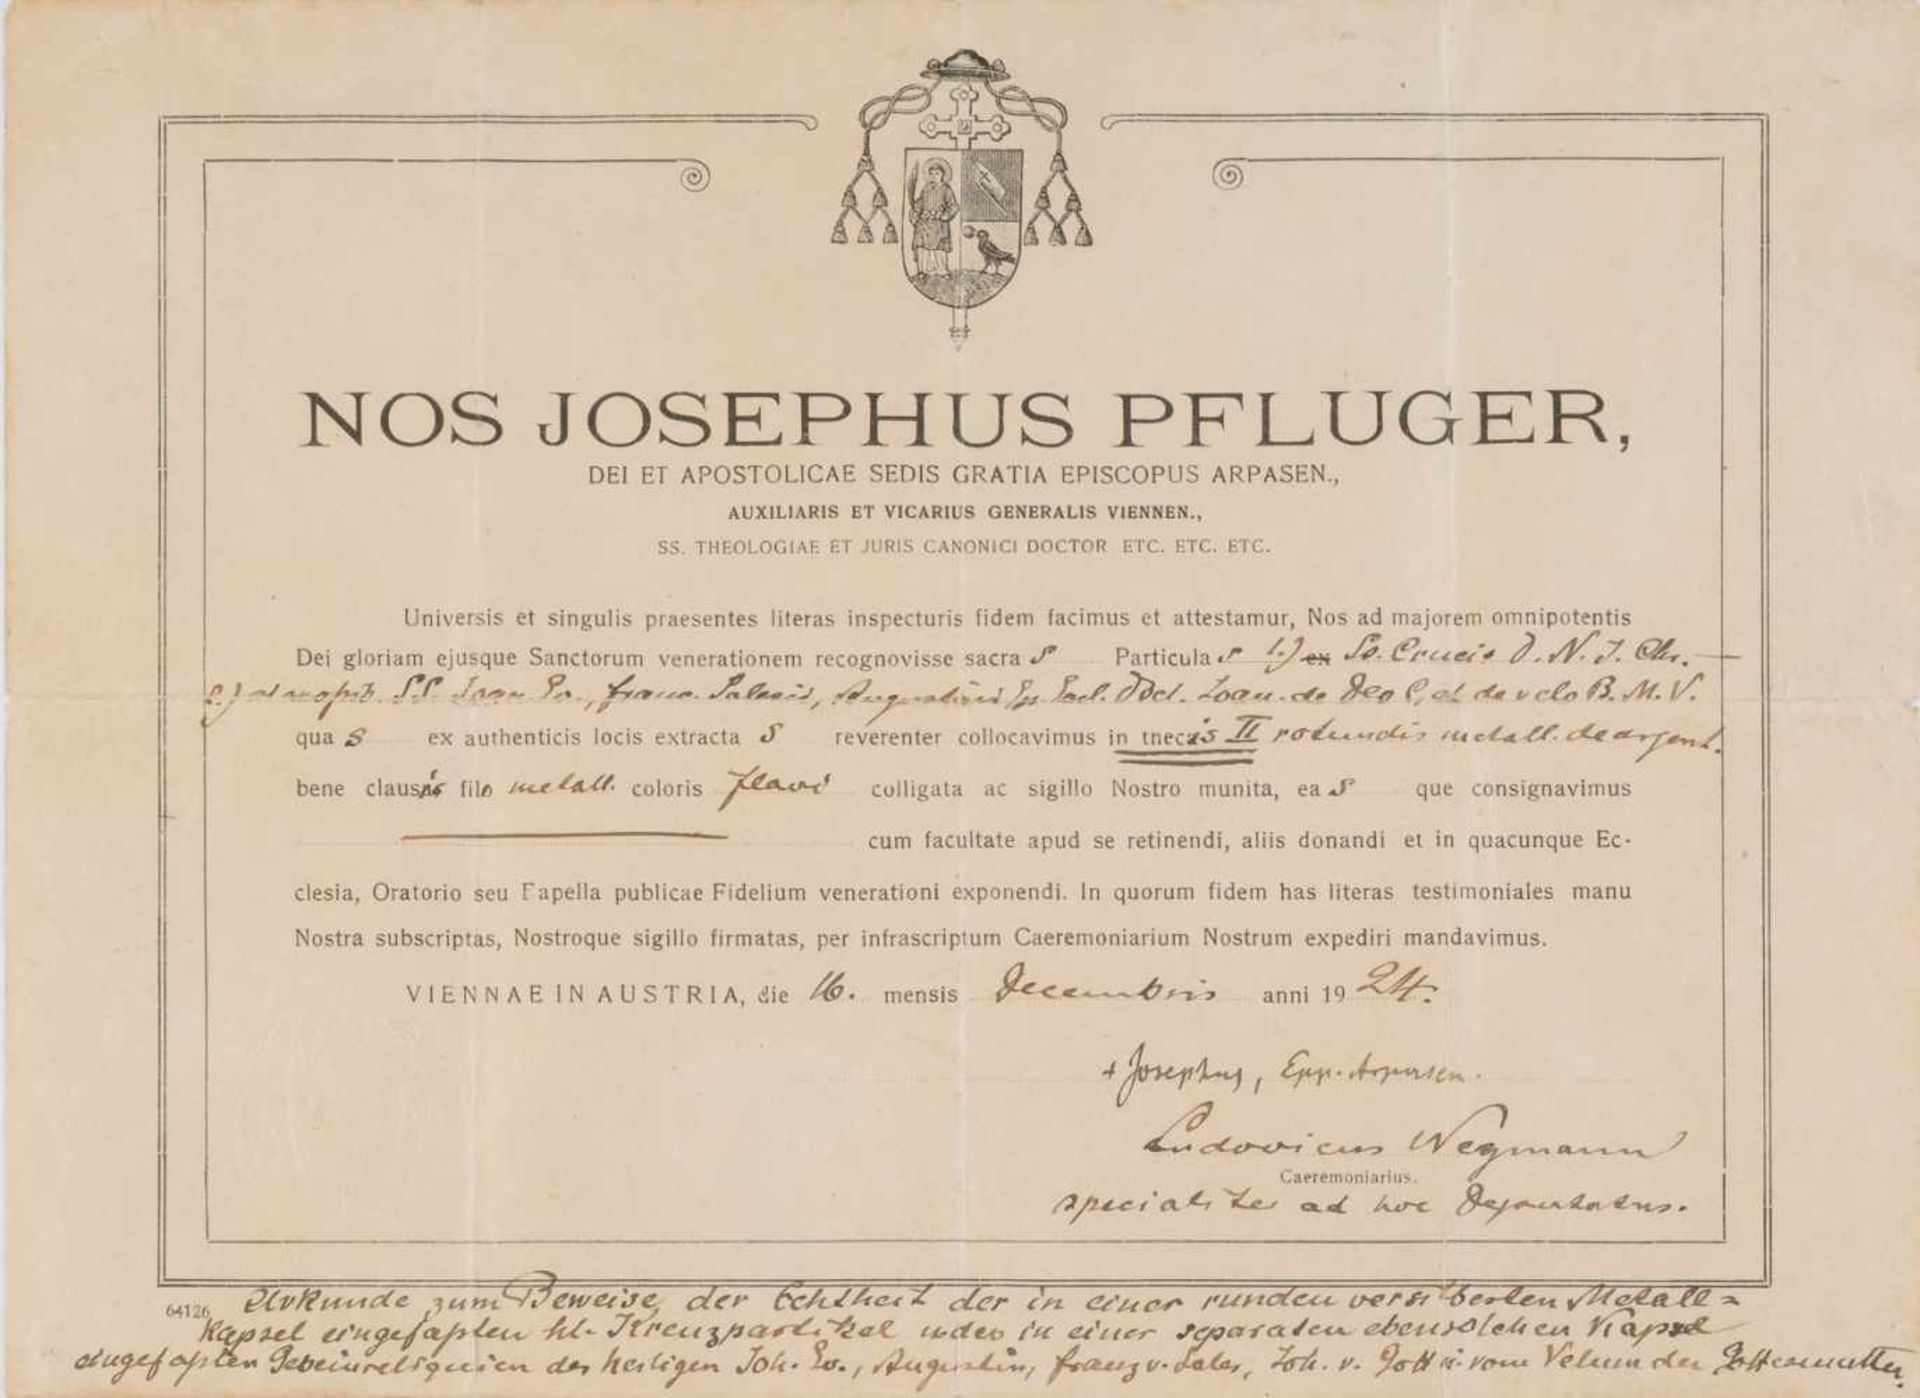 NOS JOSEPHUS PFLUGER,
DEI ET APOSTOLICAE SEDIS GRATIA EPISCOPUS ARPASEN.,
AUXILIARIS ET VICARIUS GENERALIS VIENNEN.,
SS. THEOLOGIAE ET JURIS CANONICI DOCTOR ETC. ETC. ETC.
Universis et singulis praesentes literas inspecturis fidem facimus et attestamur, Nos ad majorem omnipotentis
Dei gloriam ejusque Sanctorum venerationem recognovisse sacras Particulas 1.) ex Ss. Crucis D. N. J. Chr.
2.) S.S. Joan. Ev., franc. Salesii, Augustini Ep. Eccl. Doct. Joan. de Deo C. et de velo B. M. V.
quas ex authenticis locis extractas reverenter collocavimus in thecis II rotundis metall. deargent.
bene clausis filo metall. coloris flavi colligata ac sigillo Nostro munita, eas que consignavimus
cum facultate apud se retinendi, aliis donandi et in quacunque Ec-
clesia, Oratorio seu Capella publicae Fidelium venerationi exponendi. In quorum fidem has literas testimoniales manu
Nostra subscriptas, Nostroque sigillo firmatas, per infrascriptum Caeremoniarium Nostrum expediri mandavimus.
VIENNAE IN AUSTRIA, die 16. mensis Decembris anni 1924.
+ Josephus, Epp. Arpasen.
Ludovicus Wegmann
Caeremoniarius.
specialiter ad hoc Deputatus.
64126 Urkunde zum Beweise der Echtheit der in einer runden versilberten Metall=
kapsel eingefaßten hl. Kreuzpartikel u. der in einer separaten ebensolchen Kapsel
eingefaßten Gebeinreliquien der heiligen Joh. Ev., Augustin, franz v. Sales, Joh. v. Gott u. vom Velum der Gottesmutter.